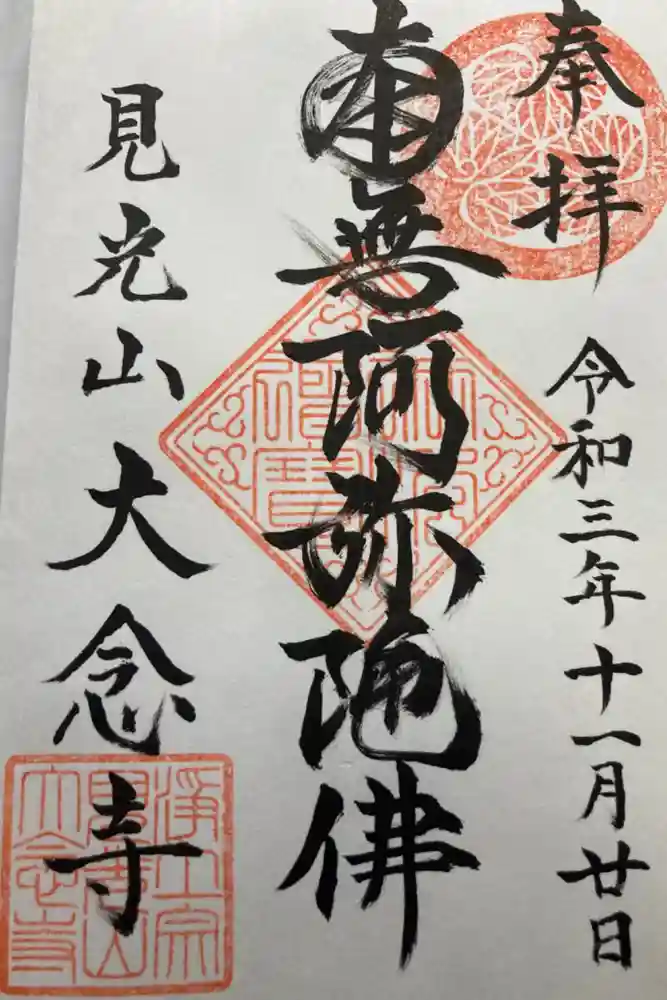 奉拝
令和三年十一月廿日
南無阿弥陀佛
佛法僧寶
見光山大念寺
浄土宗
見光山
大念寺